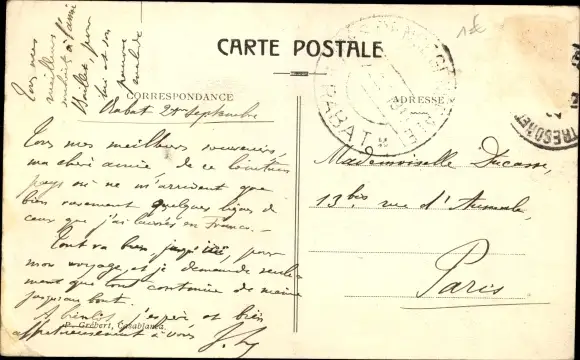 CARTE POSTALE
CORRESPONDANCE
ADRESSE
Rabat 2 Septembre
Tous mes meilleurs souvenirs,
ma chère amie de ce lointain
pays où ne m'arrivent que
bien rarement quelques lignes de
ceux que j'ai laissés en France. -
Tout va bien, jusqu'ici, pour
mon voyage, et je demande seule-
ment que tout continue de même
jusqu'au bout.
A bientôt j'espère et bien
affectueusement à vous
Tous mes
meilleurs
souhaits à l'amie
Baillet pour
lui et son
pauvre
Mademoiselle Ducasse,
13 bis rue d'Aumale,
Paris
P. Grébert, Casablanca.
RABAT
TRESOR ET
1€